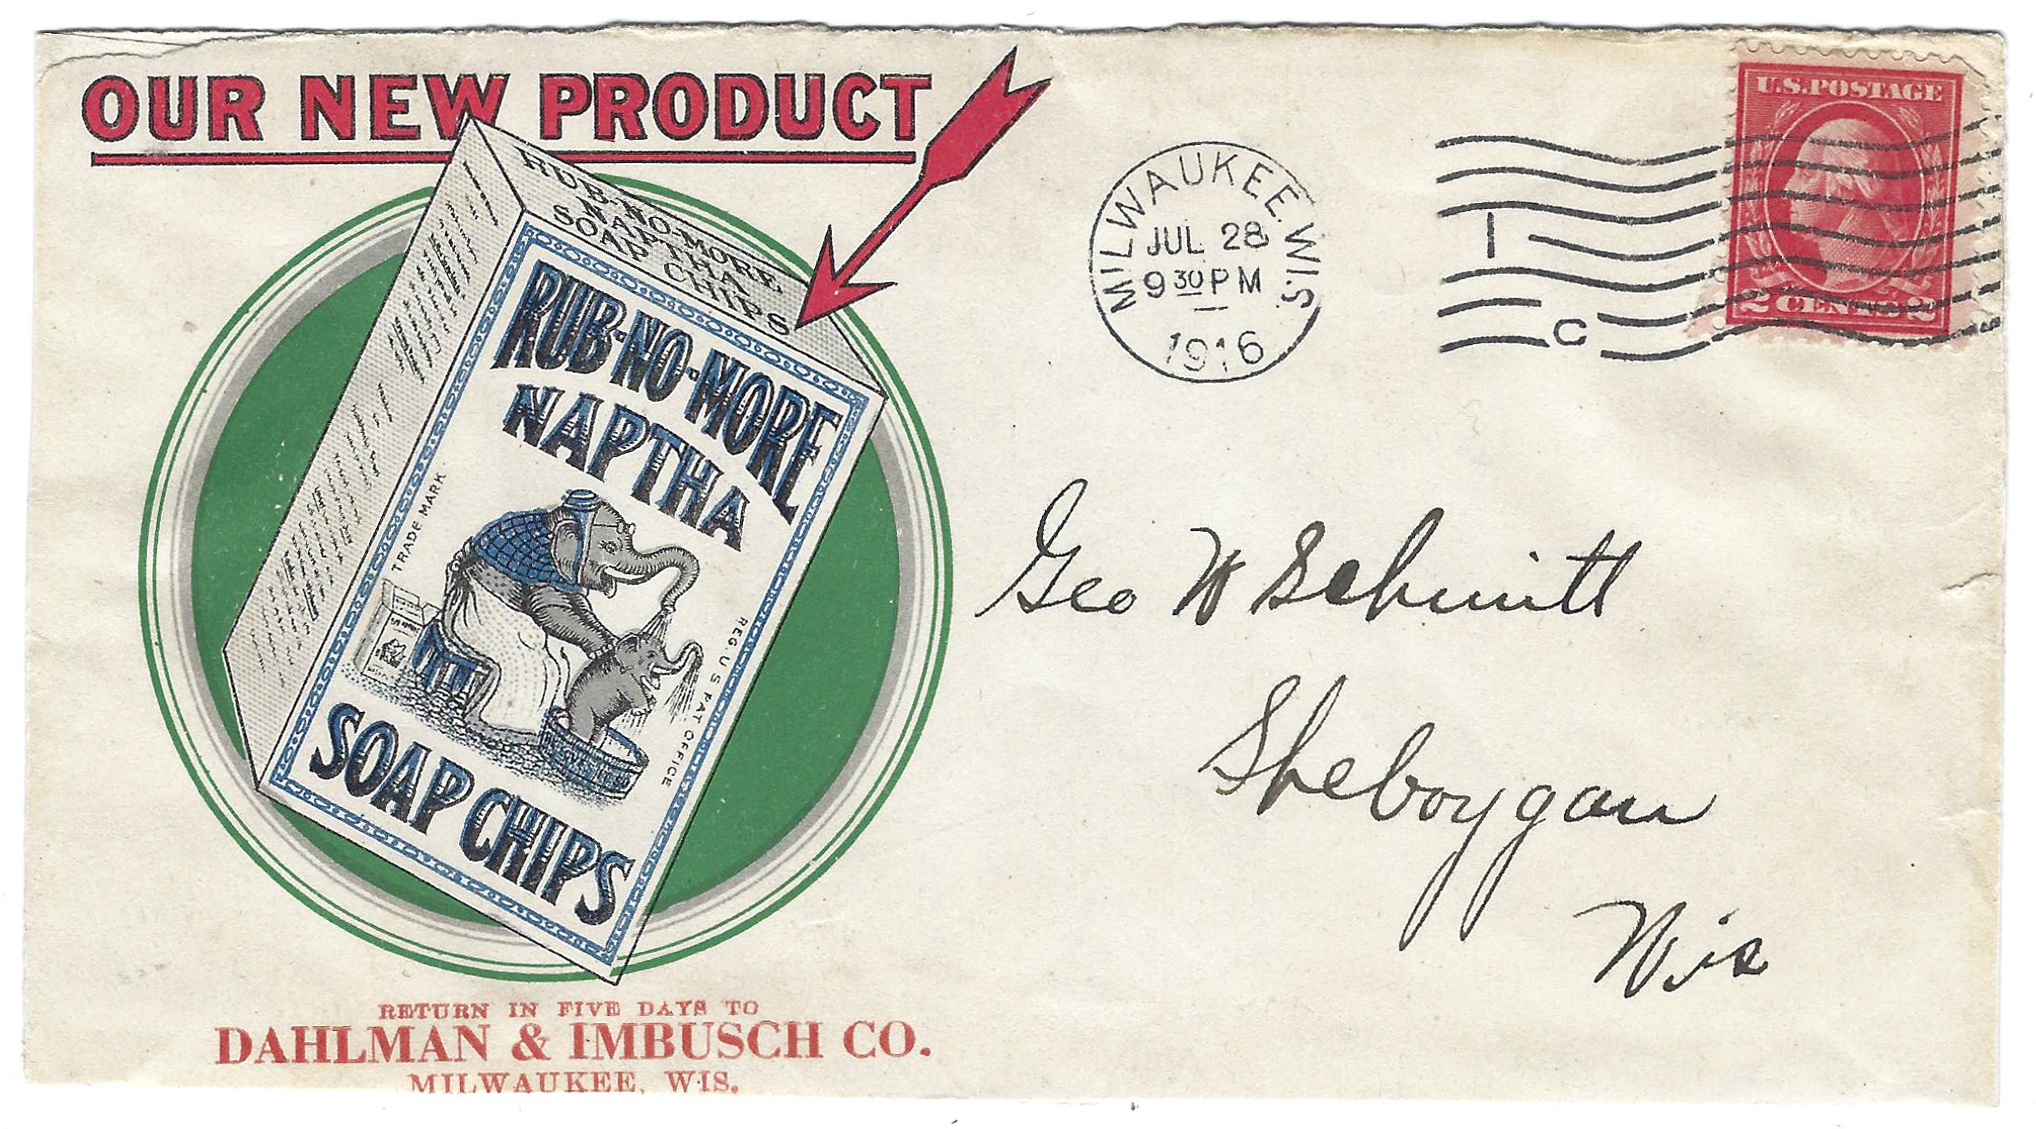 OUR NEW PRODUCT
RUB-NO-MORE
NAPTHA
SOAP CHIPS
RUB-NO-MORE
NAPTHA
TRADE MARK
REG. U.S. PAT. OFFICE
SOAP CHIPS
RETURN IN FIVE DAYS TO
DAHLMAN & IMBUSCH CO.
MILWAUKEE, WIS.
MILWAUKEE, WIS.
JUL 28
9 30 PM
1916
1
C
U.S. POSTAGE
2 CENTS 2
Geo W Schmitt
Sheboygan
Wis